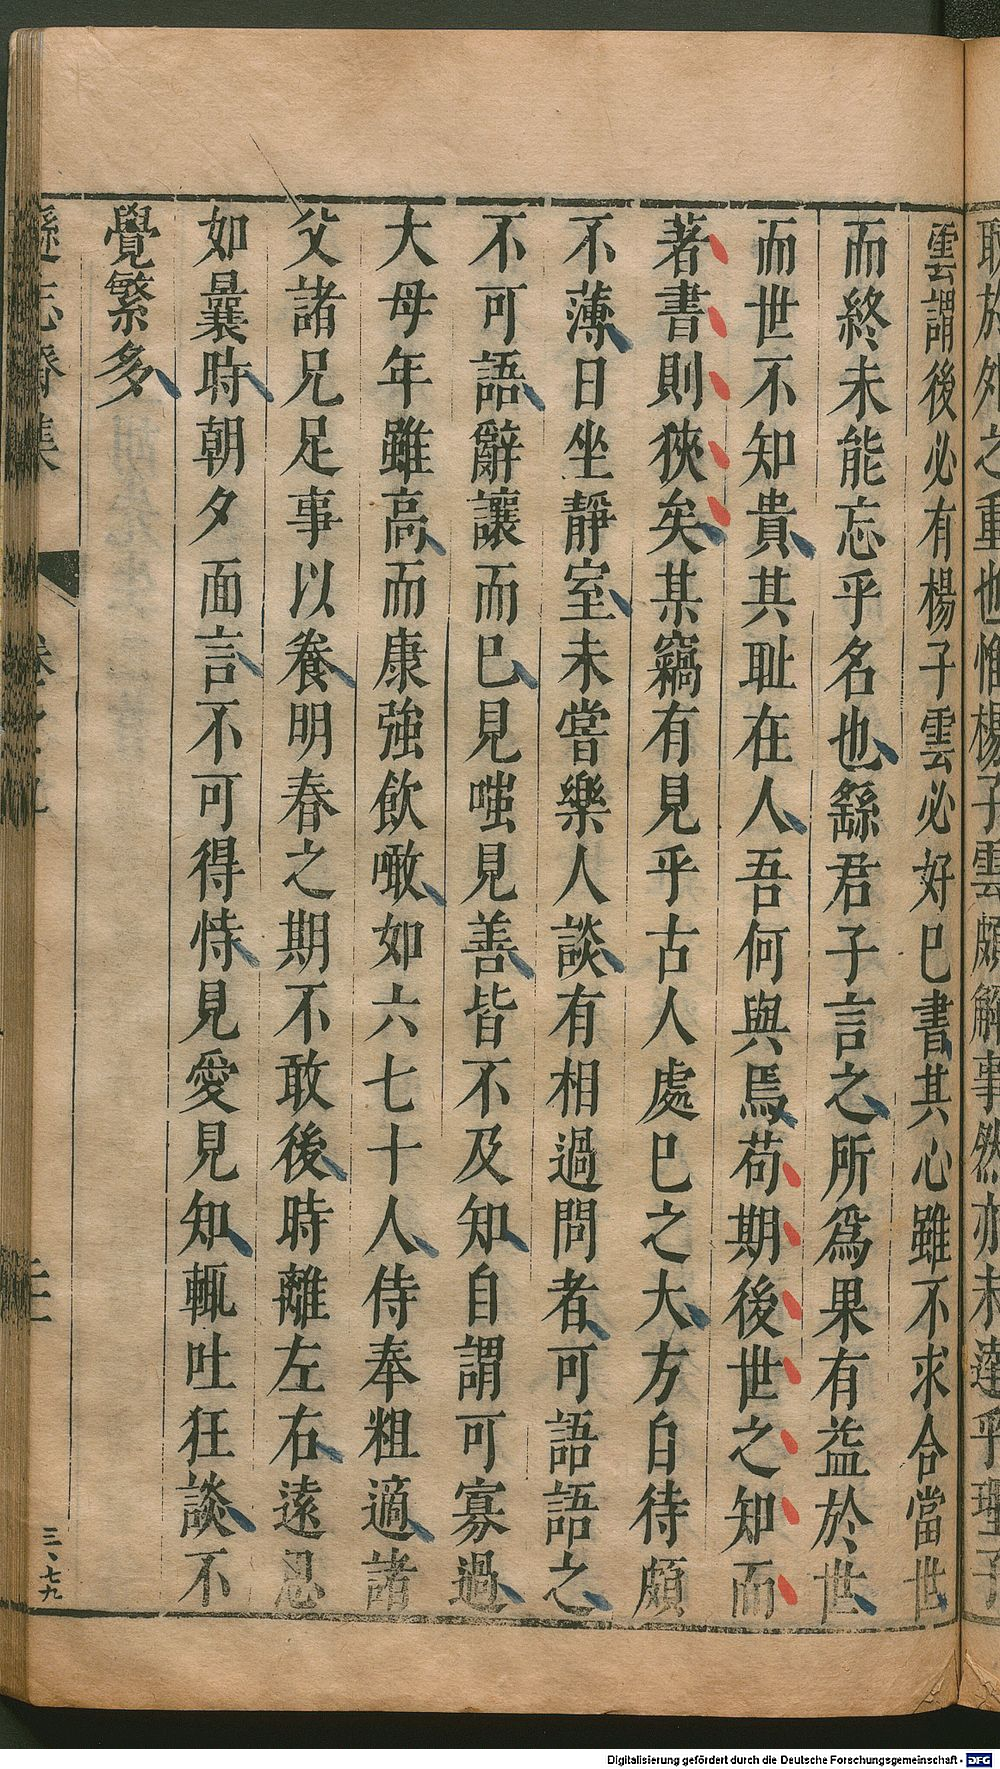 耿於外之重也惟楊子雲頗解事然亦未達乎理子
雲謂後必有楊子雲必好巳書其心雖不求合當世
而終未能忘乎名也繇君子言之所爲果有益於世
而世不知貴其耻在人吾何與焉苟期後世之知而
著書則狹矣某竊有見乎古人處巳之大方自待頗
不薄日坐靜室未嘗樂人談有相過問者可語語之
不可語辭讓而巳見嗤見善皆不及知自謂可寡過
大母年雖高而康強飲噉如六七十人侍奉粗適諸
父諸兄足事以養明春之期不敢後時離左右遠忍
如曩時朝夕面言不可得恃見愛見知輒吐狂談不
覺繁多
遜志齋集
三、七九
Digitalisierung gefördert durch die Deutsche Forschungsgemeinschaft - DFG